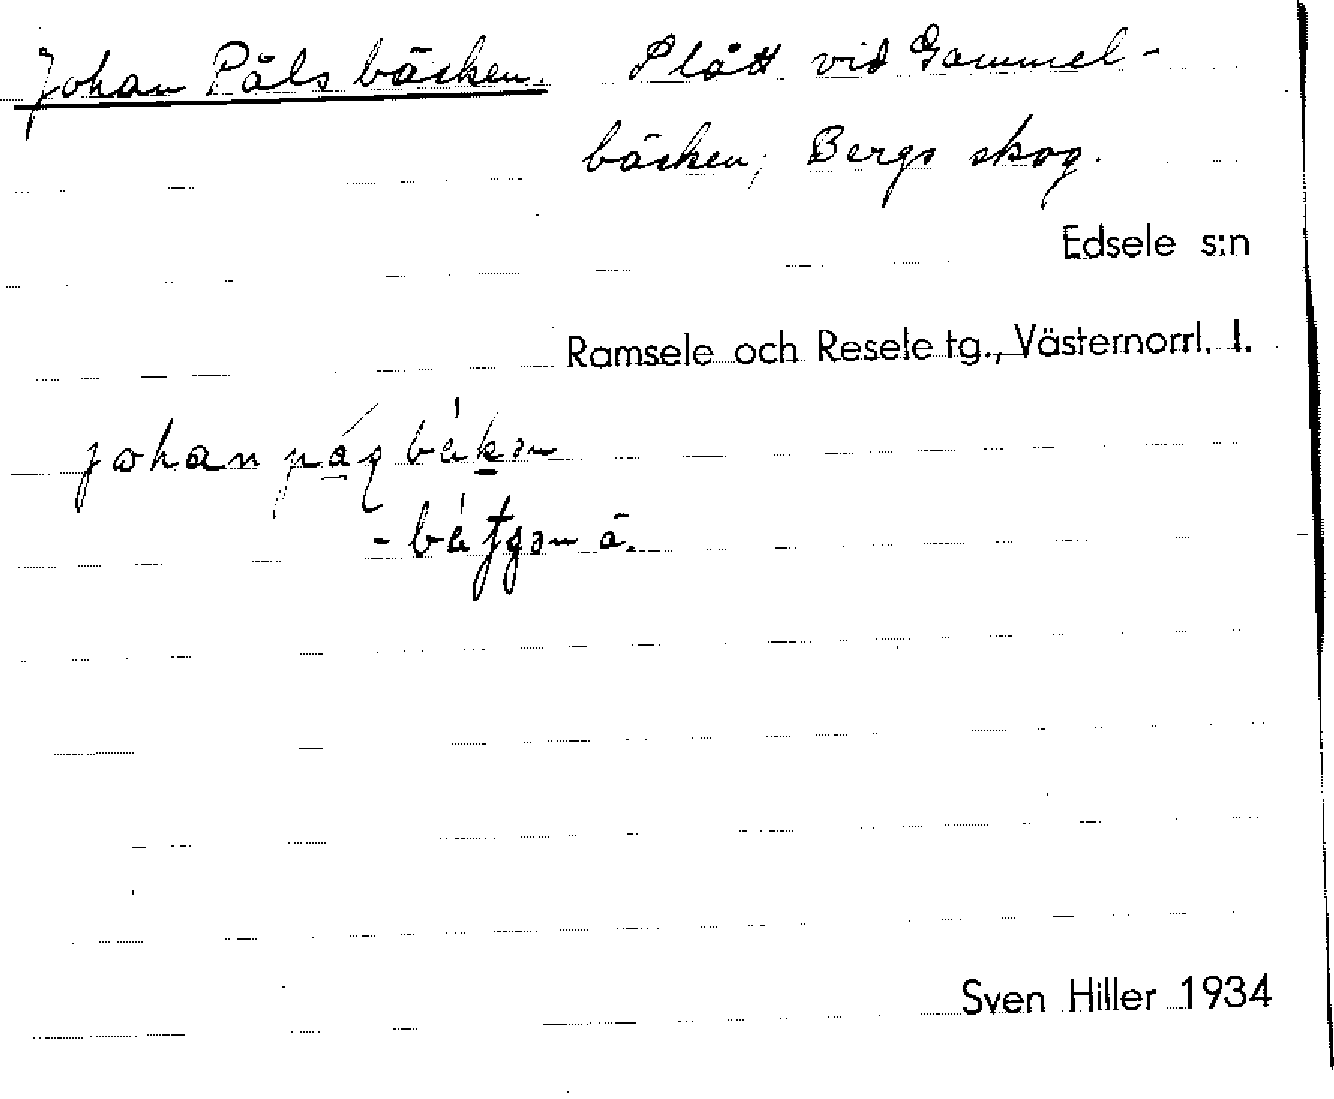 Johan Påls bäcken. Slått vid Gammel-
bäcken, Bergs skog.
Edsele s:n
Ramsele och Resele tg., Västernorrl. l.
johan
Sven Hiller 1934